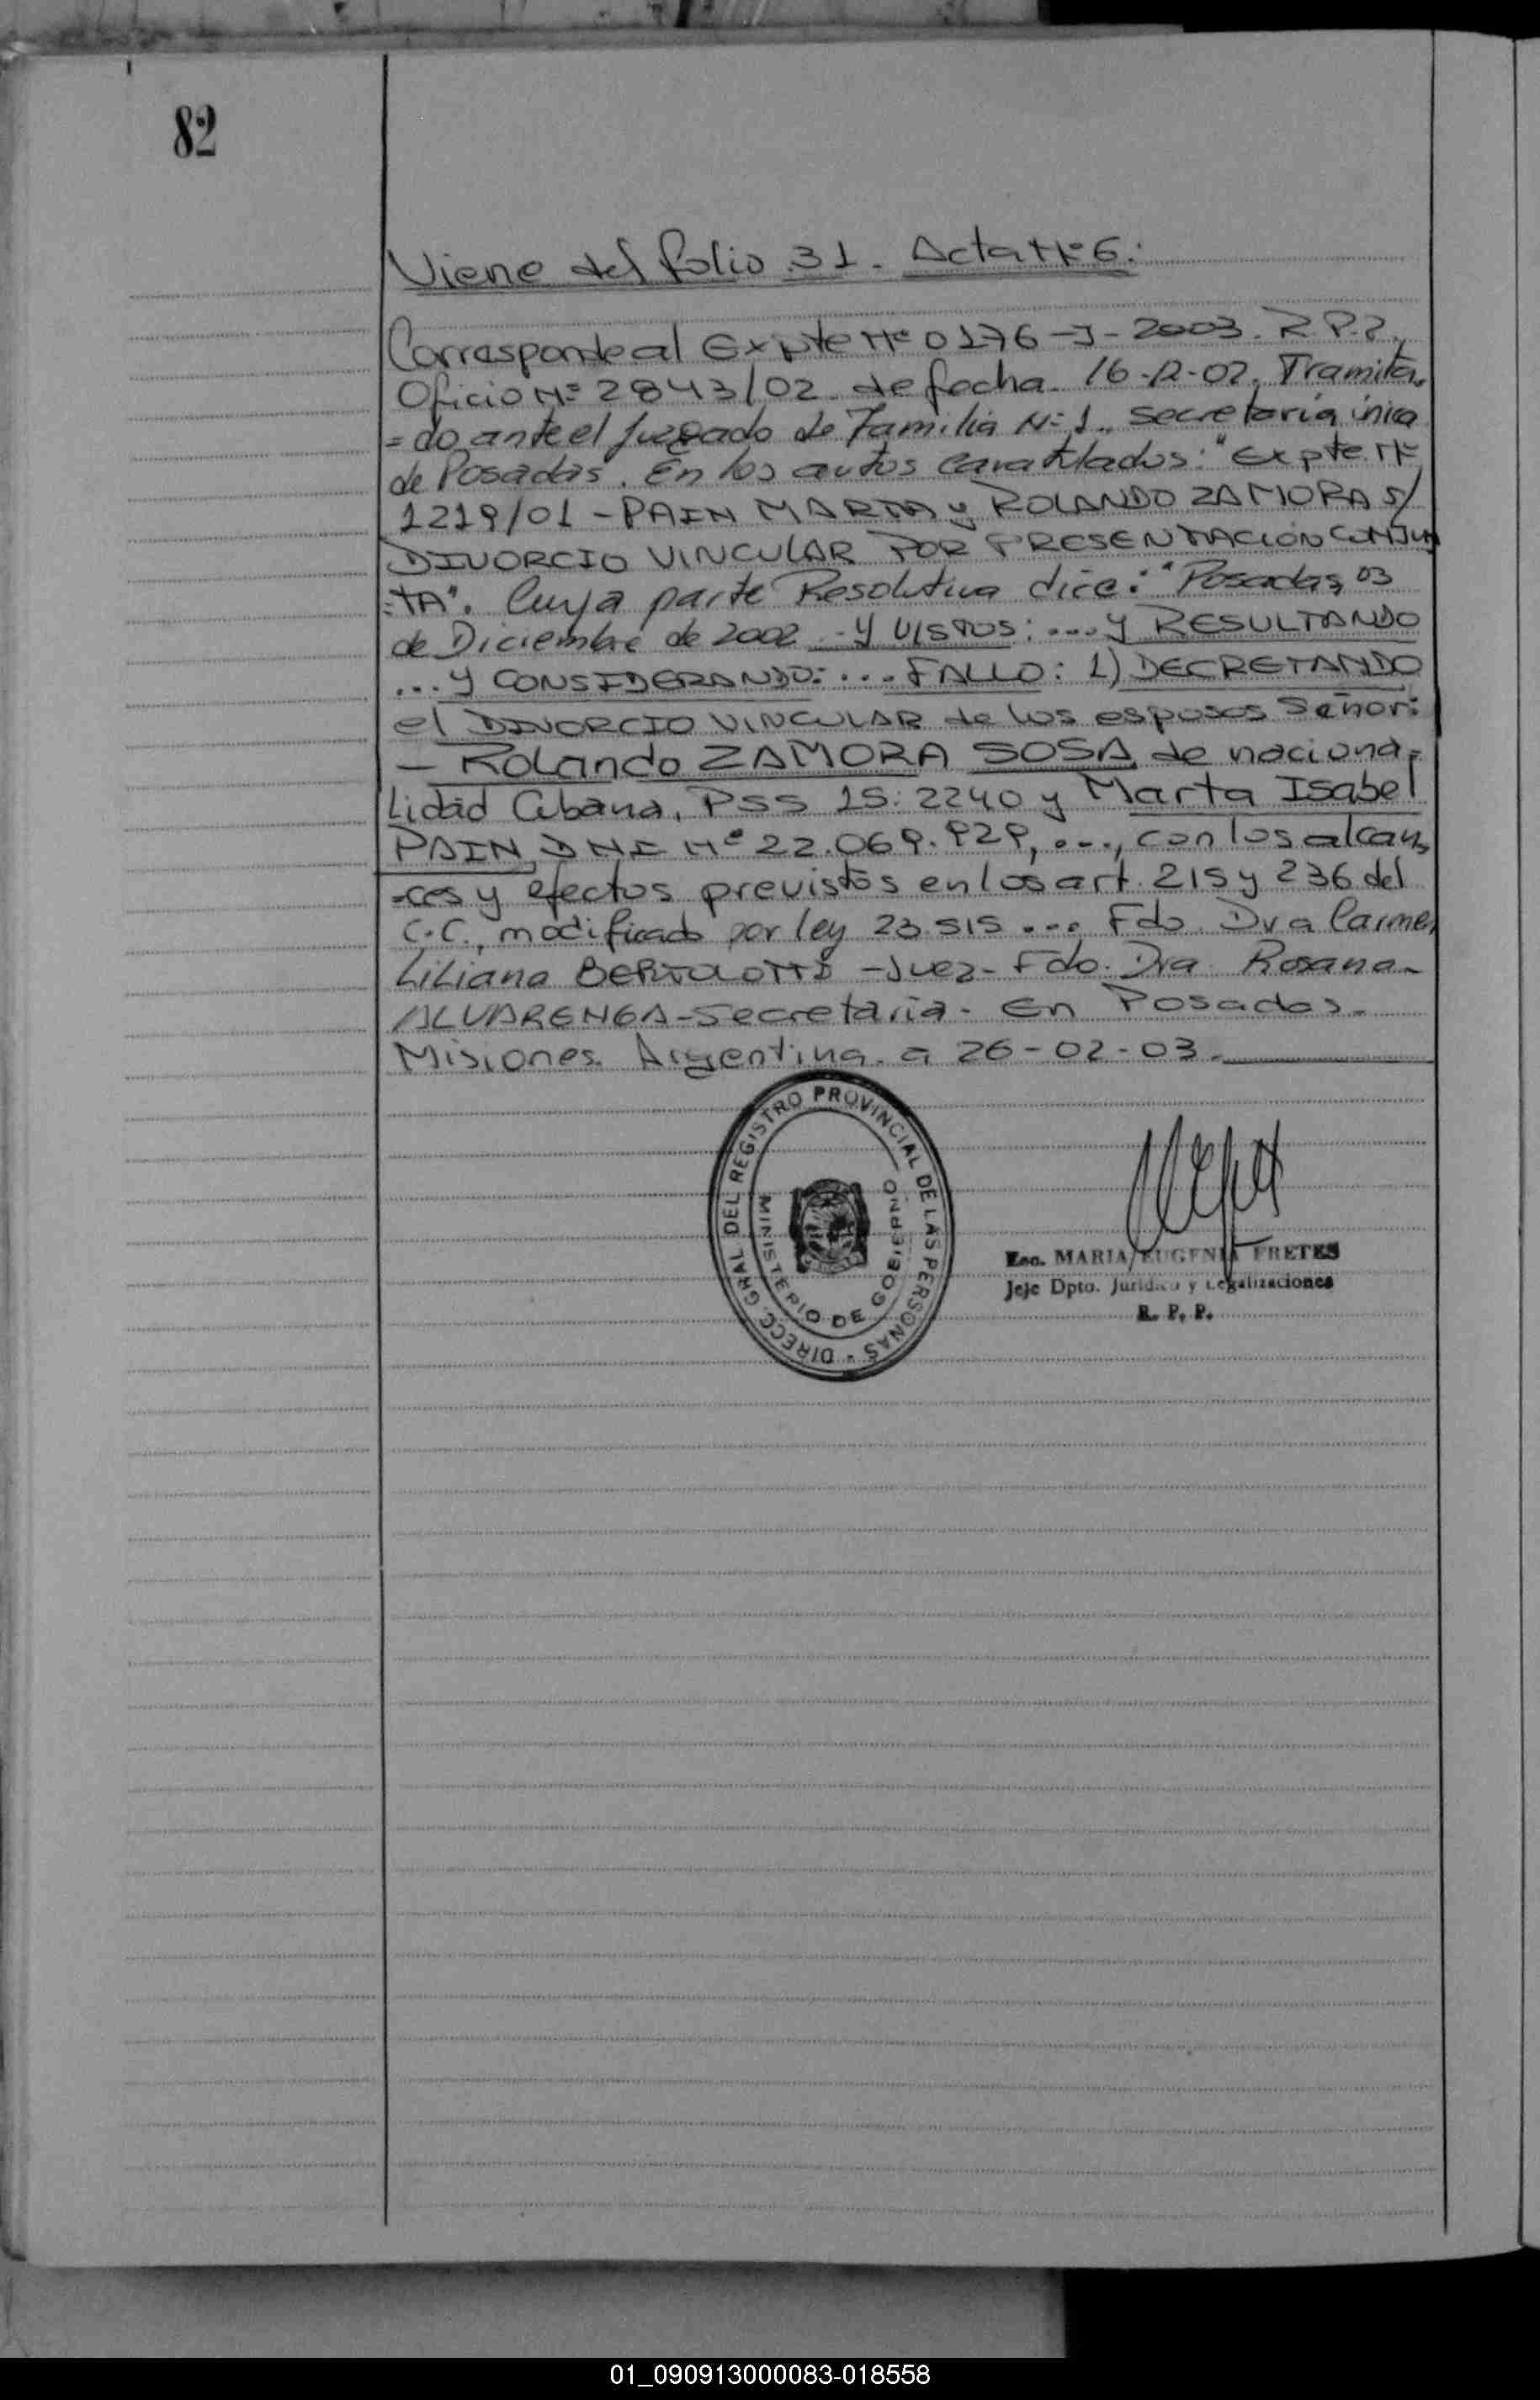 82
Viene del folio 31. Acta Nº 6.
Corresponde al Expte Nº 0176-J-2003. R.P.P.,
Oficio Nº 2843/02 de fecha 16-12-02. Tramita
=do ante el Juzgado de Familia Nº 1, secretaría única
de Posadas. En los autos caratulados: "Expte. Nº
1219/01 - PAIN MARTA y ROLANDO ZAMORA s/
DIVORCIO VINCULAR POR PRESENTACIÓN CONJUN
=TA". Cuya parte Resolutiva dice: "Posadas, 03
de Diciembre de 2002 - Y VISTOS: .... Y RESULTANDO
... Y CONSIDERANDO: ... FALLO: 1) DECRETANDO
el DIVORCIO VINCULAR de los esposos Señor:
- Rolando ZAMORA SOSA, de naciona=
lidad Cubana, PSS 15: 2240 y Marta Isabel
PAIN, DNI Nº 22.069.929, ..., con los alcan
=ces y efectos previstos en los art. 215 y 236 del
C.C., modificado por ley 23.515 .... Fdo. Dra Carmen
Liliana BERTOLOTTI - Juez - Fdo. Dra Rosana
ALVARENGA - Secretaria. En Posadas.
Misiones. Argentina. a 26-02-03.
DIRECC. GRAL. DEL REGISTRO PROVINCIAL DE LAS PERSONAS -
MINISTERIO DE GOBIERNO
Esc. MARIA EUGENIA FRETES
Jefe Dpto. Jurídico y Legalizaciones
R. P. P.
01_090913000083-018558